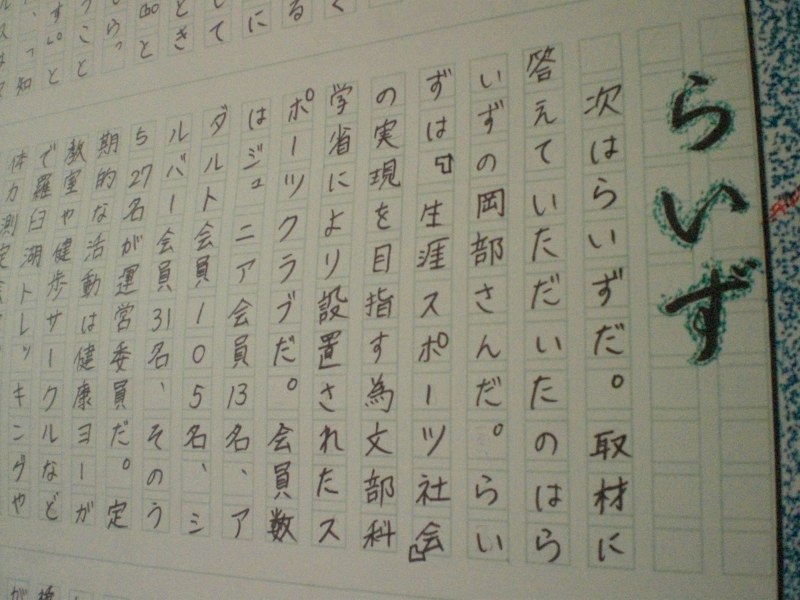 らいず
次はらいずだ。取材に
答えていただいたのはら
いずの岡部さんだ。らい
ずは『生涯スポーツ社会』
の実現を目指す為文部科
学省により設置されたス
ポーツクラブだ。会員数
はジュニア会員13名、ア
ダルト会員105名、シ
ルバー会員31名、そのう
ち27名が運営委員だ。定
期的な活動は健康ヨーガ
教室や健歩サークルなど
で羅臼湖トレッキングや
体力測定